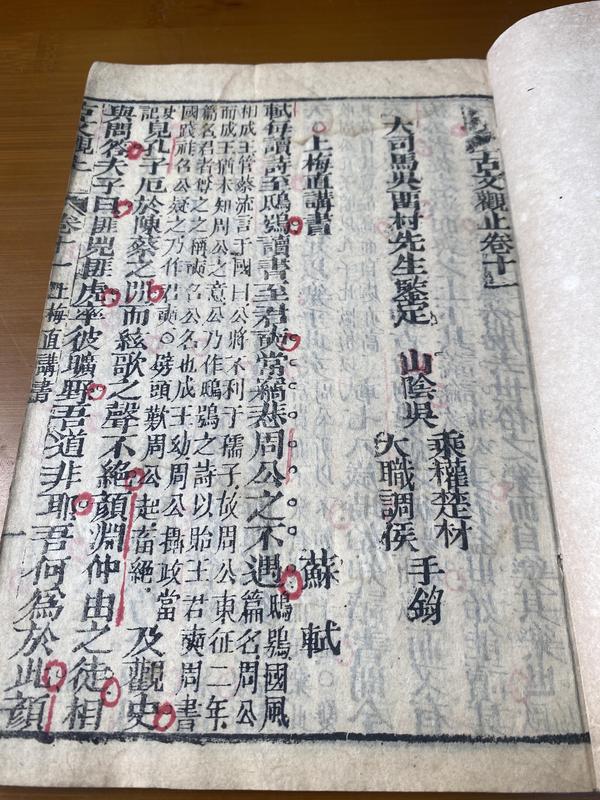 古文觀止卷十一
大司馬吳留村先生鑒定 山陰吳
乘權楚材
大職調侯
手錄
上梅直講書
蘇軾
軾每讀詩至鴟鴞讀書至君奭常竊悲周公之不遇
鴟鴞國風
篇名周公
相成王管蔡流言于國曰公將不利于孺子故周公東征二年
而成王猶未知周公之意公乃作鴟鴞之詩以貽王君奭周書
篇名君者尊之之稱奭召公名也成王幼周公攝政當
國踐祚召公疑之乃作君奭。劈頭歎周公起奇絕。
及觀史
記見孔子厄於陳蔡之間而絃歌之聲不絕顏淵仲由之徒相
與問答夫子曰匪兕匪虎率彼曠野吾道非耶吾何為於此顏
古文觀止 卷十一 上梅直講書 一